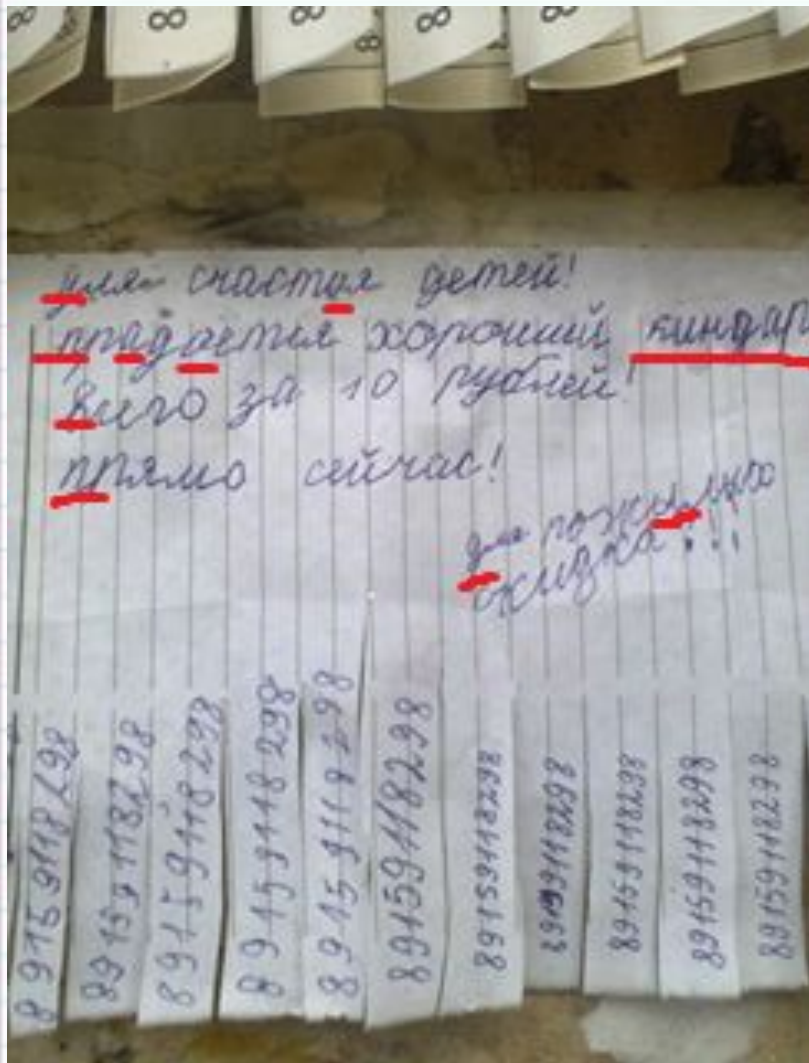 8 8 8 8 8 8
для счастия детей!
прадается хороший киндар
Виго за 10 рублей!
прямо сейчас!
для пожилых
скидка!!!
89159118298
89159118298
89159118298
89159118298
89159118298
89159118298
89159118298
89159118298
89159118298
89159118298
89159118298